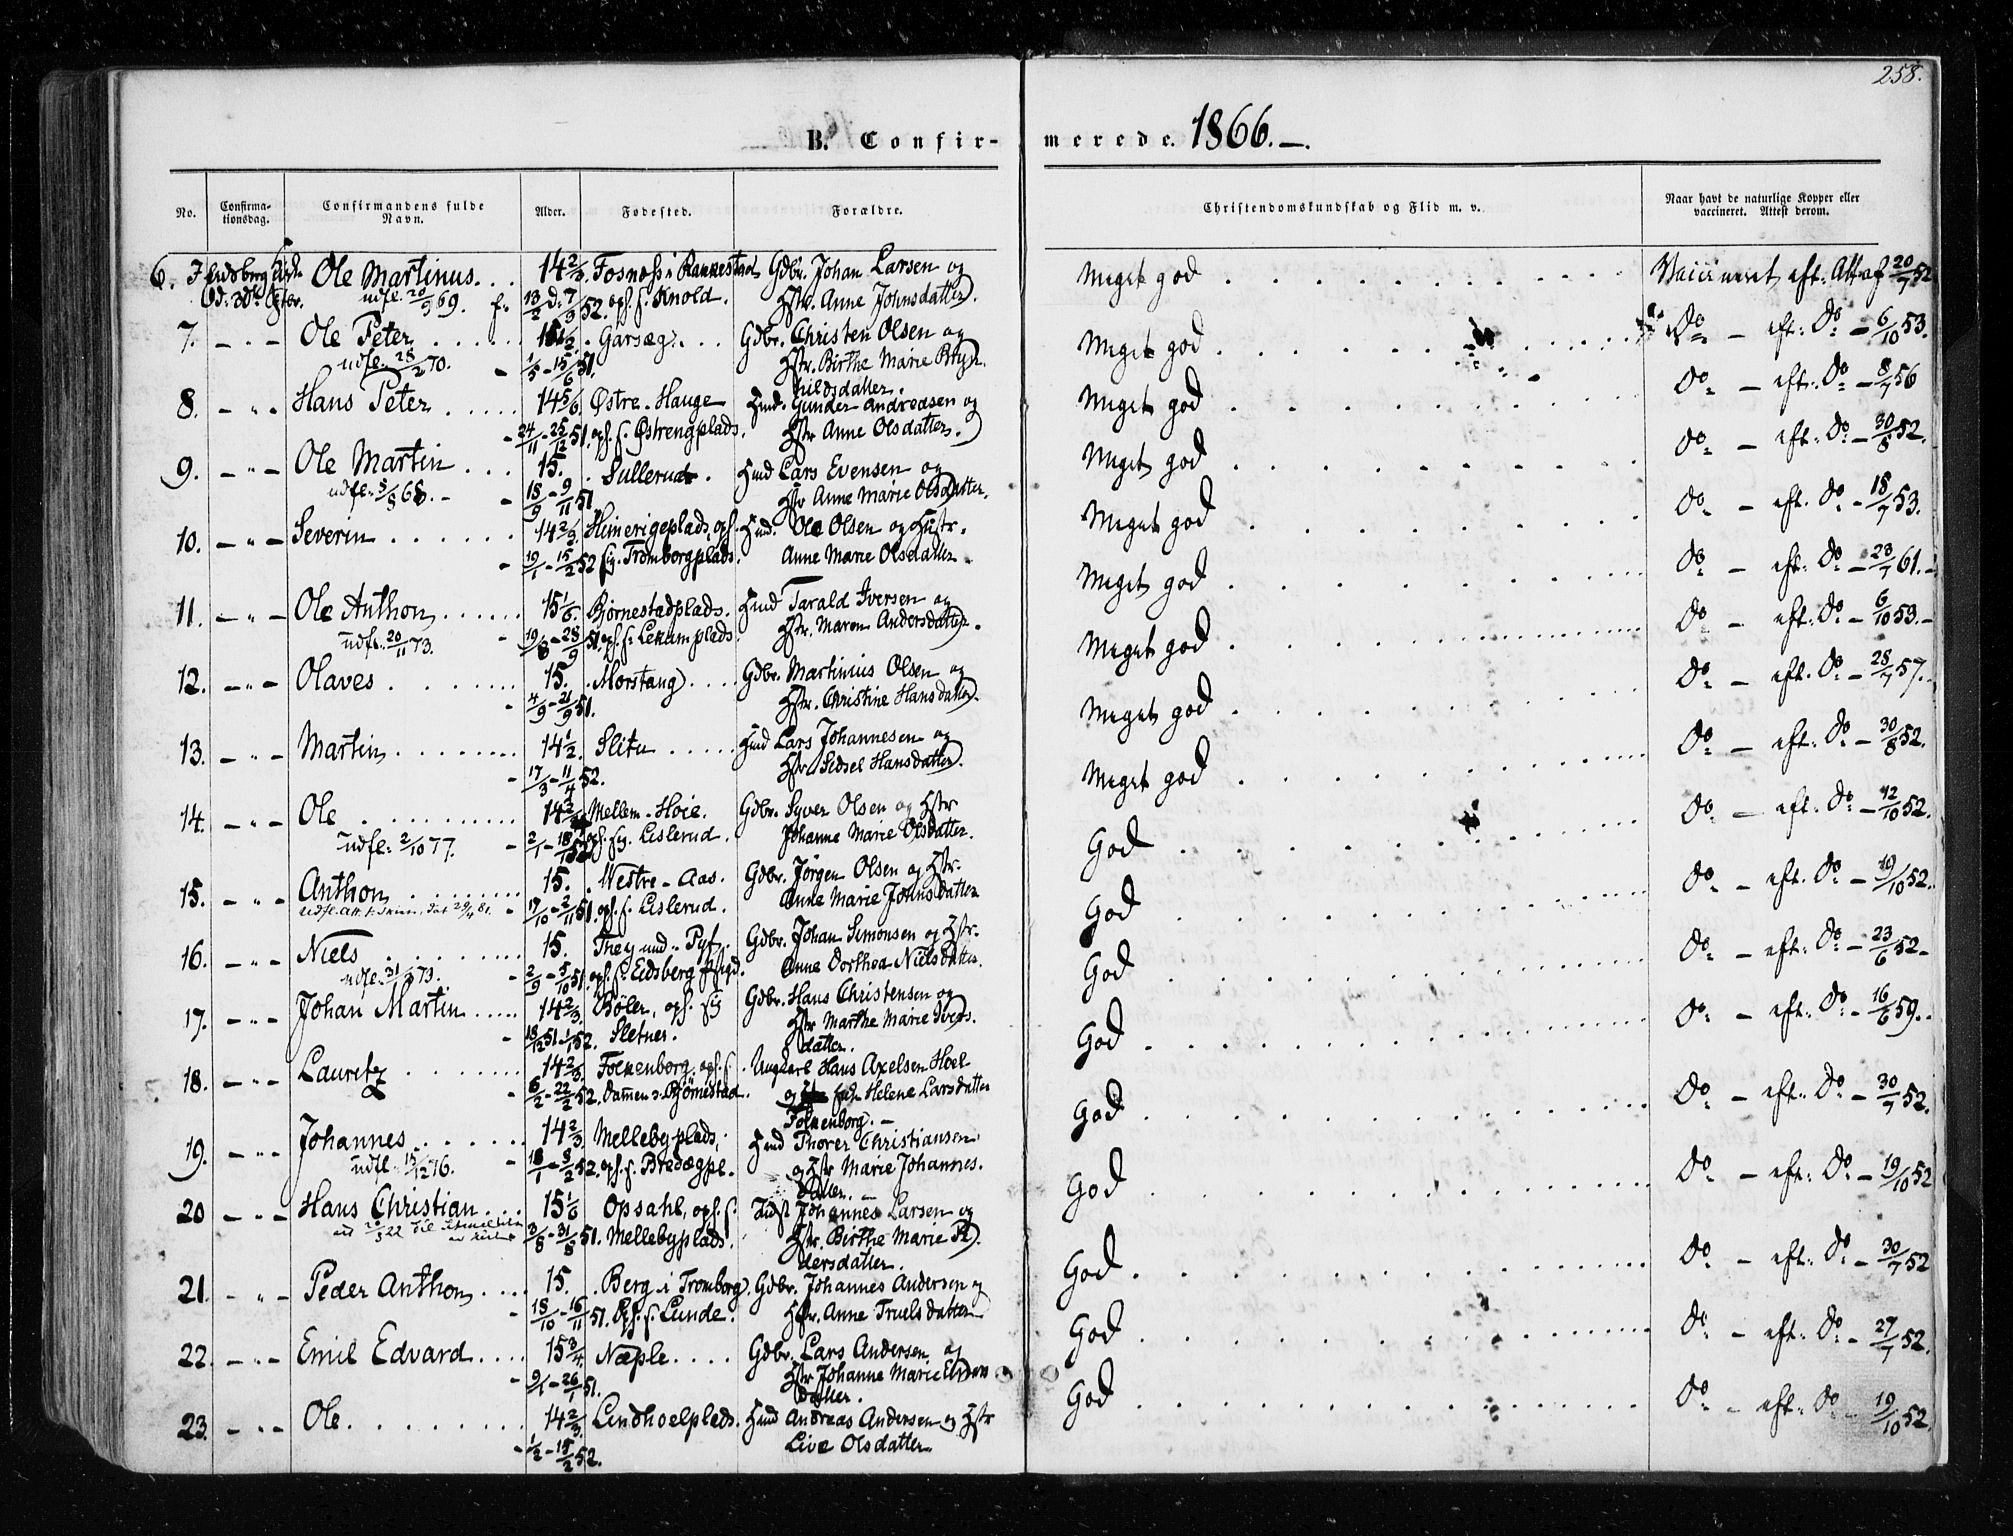 258.
B. Confirmerede. 1866.
No. Confirmationsdag. Confirmandens fulde Navn. Alder. Fødested. Forældre. Christendomskundskab og Flid m. v. Naar havt de naturlige Kopper eller vaccineret. Attest derom.
6. Ole Martinus. 14 2/3. Gdbr. Johan Larsen og Meget god
udfl. 20/5 69. f. 13/2 d. 7/3 52. oph. f. Knold. Hstr. Anne Johnsdatter.
7. Ole Peter 15 1/2. Garseg. Gdbr. Christen Olsen og Meget god Do eft. Do 6/10 53.
udfl. 28/2 70. 1/5 - 15/6 51. Hstr. Birthe Marie
8. Hans Peter 14 5/6. Østre Hauge Hmd. Gunder Andreasen og Meget god Do eft. Do 8/7 56
24/11 - 25/12 51. oph. f. Østrengplads. Hstr Anne Olsdatter.
9. Ole Martin 15. Sullerud. Hmd Lars Evensen og Meget god Do eft. Do 30/8 52.
18/9 - 9/11 51. Hstr Anne Marie Olsdatter.
10. Severin 14 2/3. Hmd. Ole Olsen og Hustr. Meget god Do eft. Do 18/7 53.
19/1 - 15/2 52 Tromborgplads. Anne Marie Olsdatter.
11. Ole Anthon 15 1/6. Bjørnestadplads. Hmd Tarald Iversen og Meget god Do eft. Do 23/7 61.
udfl. 20/11 73. 19/8 - 28/9 51. oph. f. Lekumplads. Hstr. Maren Andersdatter.
12. Olaves 15. Morstang Gdbr. Martinius Olsen og Meget god Do eft. Do 6/10 53.
4/9 - 21/9 51. Hstr. Christine Hansdatter.
13. Martin 14 1/2. Slitu Hmd Lars Johannesen og Meget god Do eft. Do 28/7 57.
17/3 - 11/4 52. Hstr Sidsel Hansdatter.
14. Ole Mellem-Høie. Gdbr. Syver Olsen og Hstr Meget god Do eft. Do 30/8 52.
udfl. 2/10 77. oph. sig. Lislerud. Johanne Marie Olsdatter.
15. Anthon 15. Westre-Aas. Gdbr. Jørgen Olsen og Hstr. God Do eft. Do 12/10 52.
17/10 - 2/11 51. oph. f. Lislerud. Anne Marie Johnsdatter
16. Niels 15. Gdbr. Johan Simonsen og Hstr. God Do eft. Do 19/10 52.
udfl. 31/3 73. 2/9 - 5/10 51. oph. f. Eidsberg Anne Dorthea Nielsdatter.
17. Johan Martin 14 2/3. Bøler, oph. sig Gdbr. Hans Christensen og God Do eft. Do 23/6 52
18/12 51 - 1/1 52. Sletner. Hstr Marthe Marie Ivers-
datter.
18. Lauritz 14 2/3. Folkenborg. oph. f. Ungkarl Hans Axelsen Hoel God Do eft. Do 16/6 59.
6/2 - 22/2 52. Bjørnestad. og Helene Larsdatter
Folkenborg.
19. Johannes 14 2/3. Mellebyplads, Hmd Thorer Christiansen God Do eft. Do 30/7 52.
udfl. 15/12 76. 18/1 - 8/2 52. oph. f. og Hstr Marie Johannes-
datter.
20 Hans Christian 15 1/6 Opsahl, oph. f. Johannes Larsen og God Do eft. Do 19/10 52
3/8 - 31/8 51. Mellebyplads. Hstr. Birthe Marie Pe-
dersdatter.
21. Peder Anthon 15. Berg i Tromborg. Gdbr. Johannes Andersen og God Do eft. Do 30/7 52
18/10 - 16/11 51. Oph. f. Lunde. Hstr. Anne Truelsdatter
22. Emil Edvard 15 3/4. Næple. Gdbr. Lars Andersen og God Do eft. Do 27/7 52.
9/1 - 26/1 51. Hstr Johanne Marie
datter.
23. Ole 14 2/3. Lindhoelplads. Hmd Andreas Andersen og Hstr God Do eft. Do 19/10 52.
1/2 - 15/2 52. Live Olsdatter